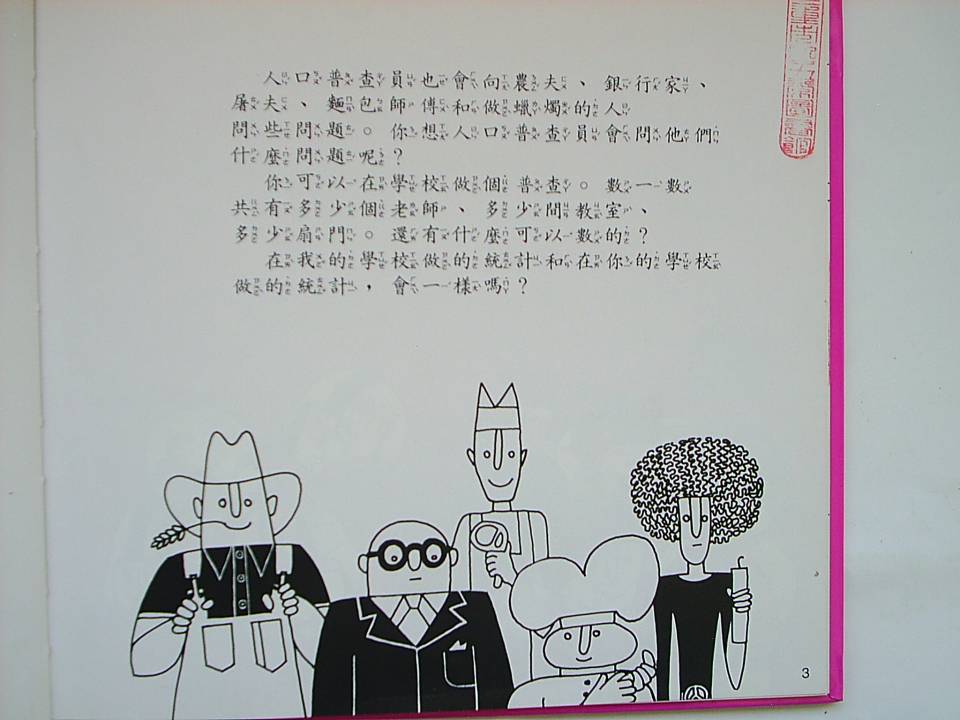 人口普查員也會向農夫、銀行家、
屠夫、麵包師傅和做蠟燭的人
問些問題。你想人口普查員會問他們
什麼問題呢？
你可以在學校做個普查。數一數
共有多少個老師、多少間教室、
多少扇門。還有什麼可以數的？
在我的學校做的統計和在你的學校
做的統計，會一樣嗎？
3